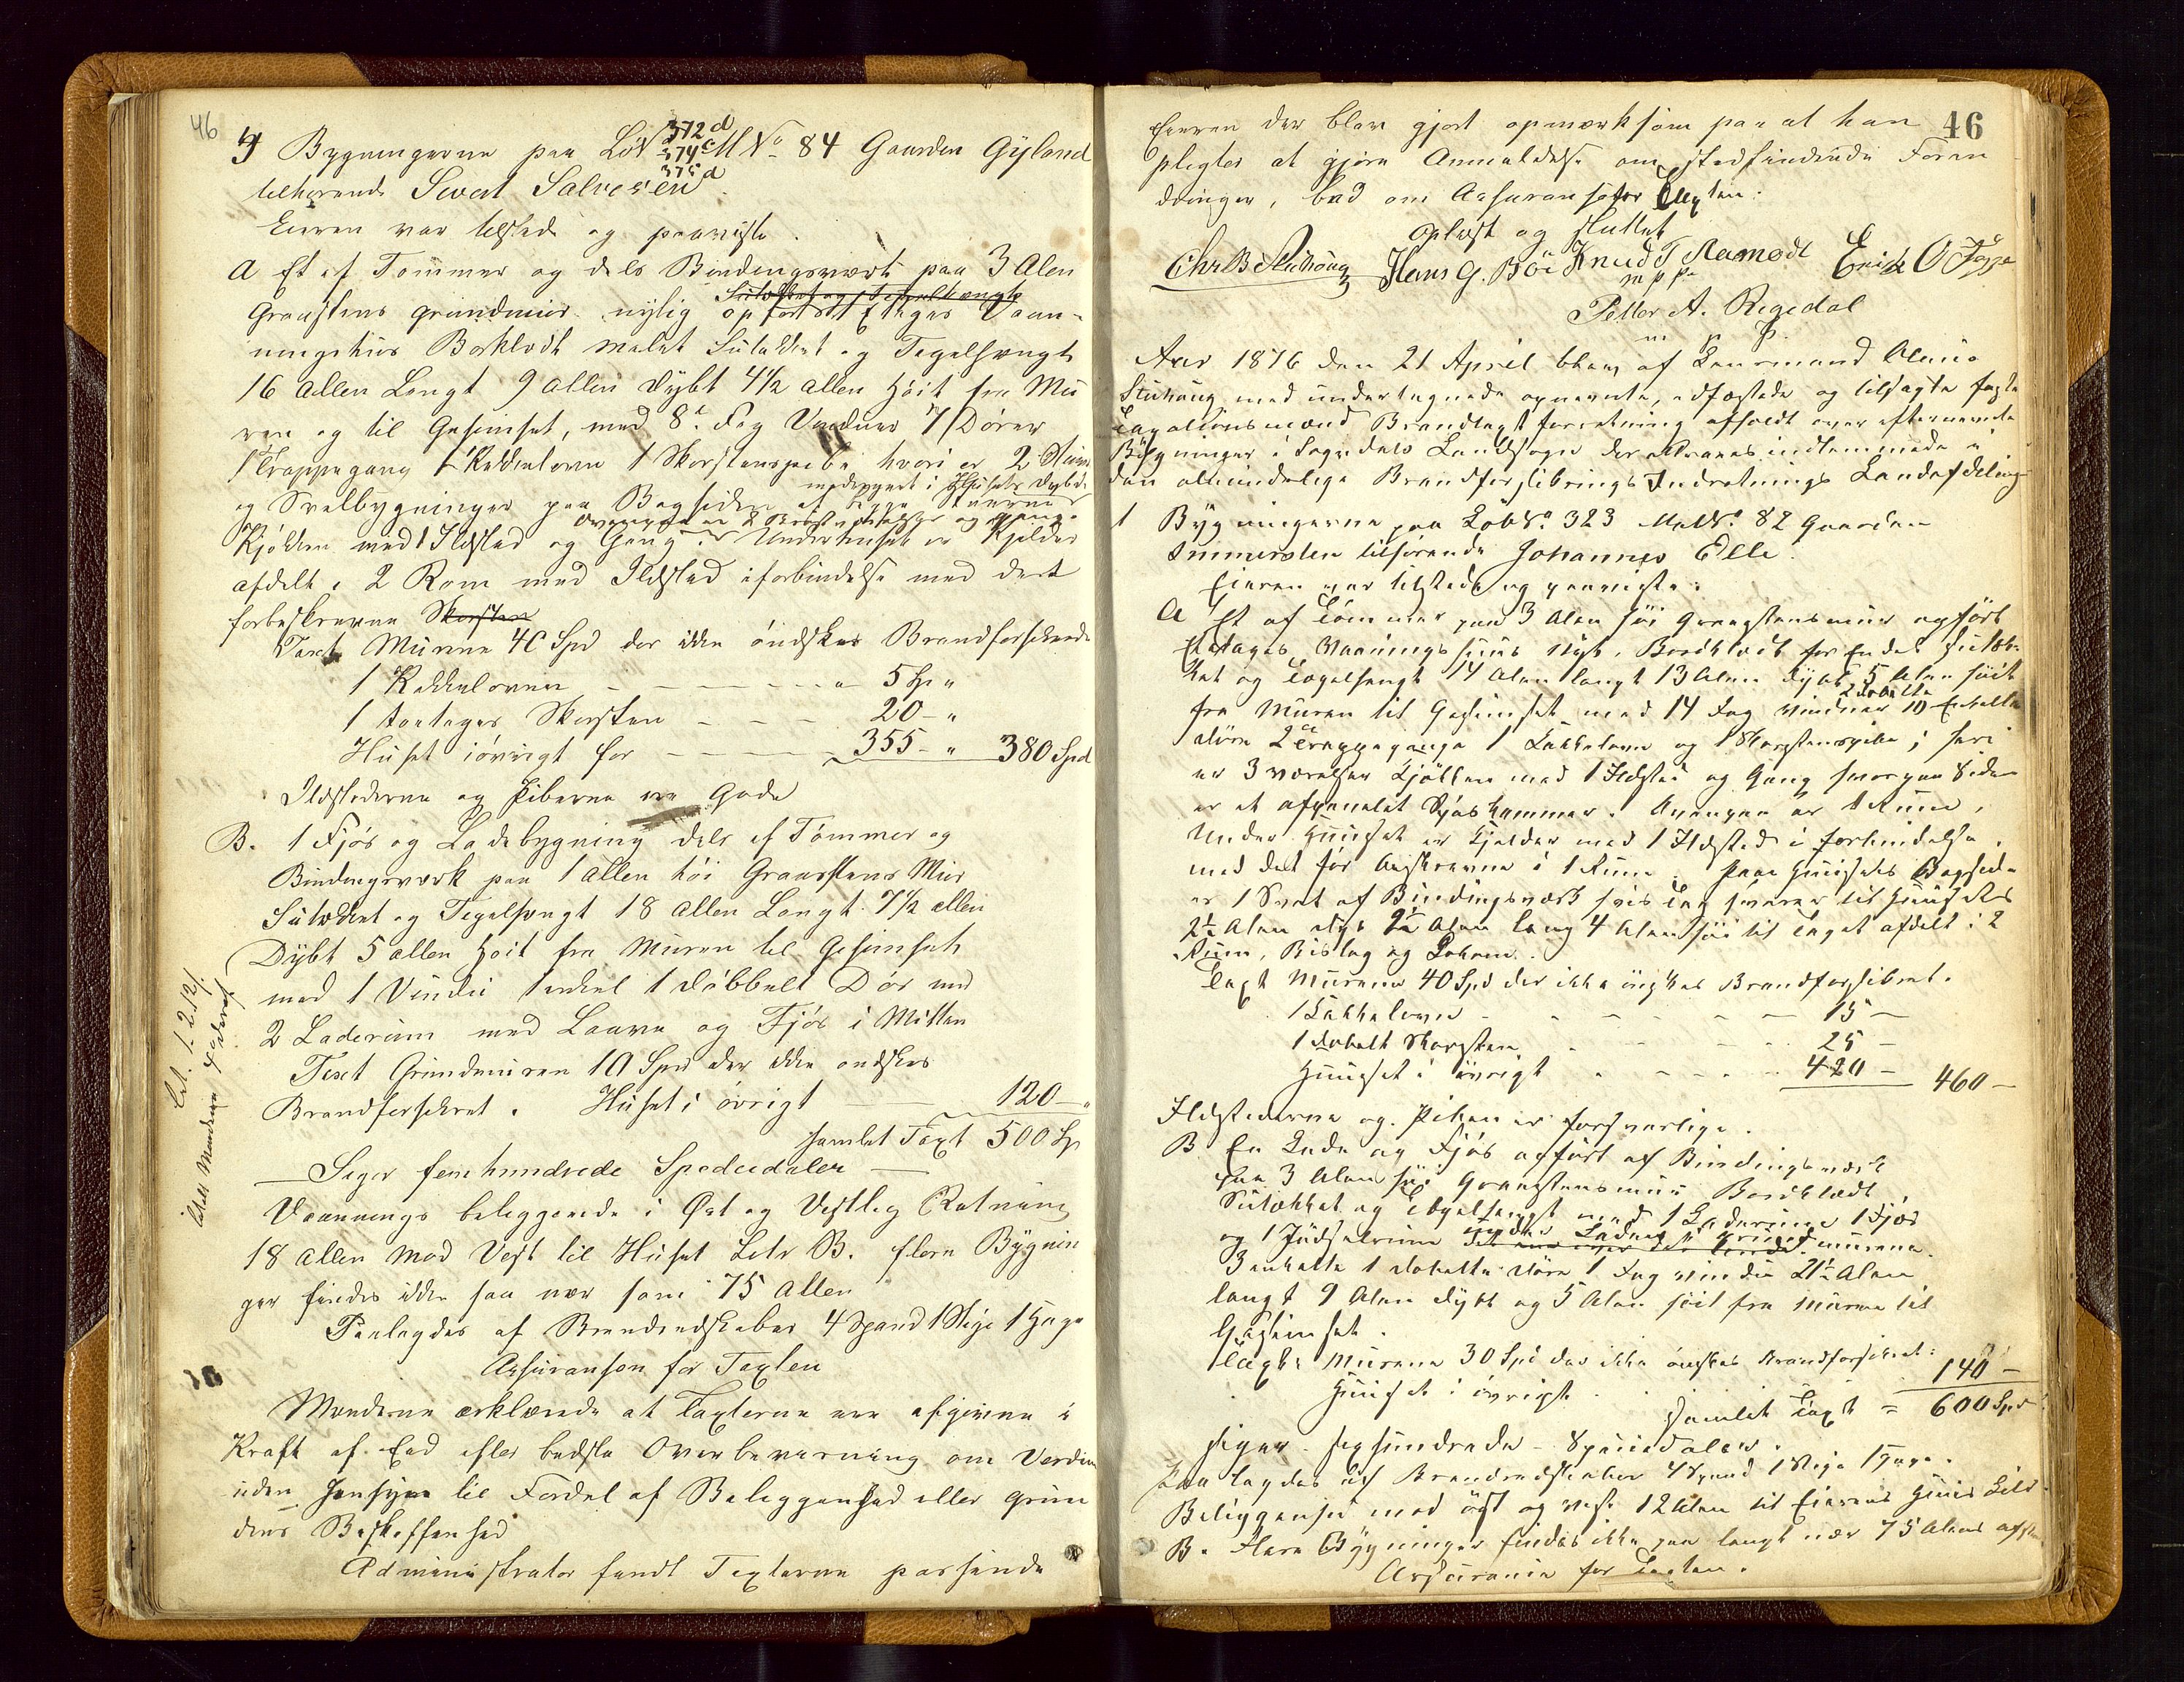 46
4 Bygningerne paa LøbNo 372d 374c 375d MNo 84 Gaarden Gyland
tilhørende Sivert Salvesen
Eieren var tilstede og paaviste.
A Et af Tømmer og dels Bindingsværk paa 3 Alen
Graastens grundmur nylig opført 1 Etages Vaan-
ningshus Bordklædt malet Sutækket og Tegelhængt
16 Allen Langt 9 allen Dybt 4 1/2 allen Høit fra Mu
ren og til Gesimset, med 8te Fag Vinduer 7 Dører
1 Trappegang 1 Kakkelovn 1 Skorstenspibe hvori er 2 Stuer
og Svalbygninger paa Bagsiden
Kjøkken med 1 Ildsted og Gang. Underhuset er Kjelder
afdelt i 2 Rom med Ildsted i forbindelse med det
forbeskrevne Skorsten
Taxt Murene 40 Spd der ikke øndskes Brandforsikrede
1 Kakkelovn - - - - - " 5 Sp "
1 toetages Skorsten - - - - 20 - "
Huset iøvrigt for - - - 355 - " 380 Spd
Ildstederne og Piberne ere Gode
B. 1 Fjøs og Ladebygning dels af Tømmer og
Bindingsværk paa 1 allen høi Graastens Mur
Sutækket og Tegelhængt 18 Allen Langt 7 1/2 allen
Dybt 5 allen Høit fra Muren til Gesimset
med 1 Vindu 1 enkel 1 dobbelt Dør med
2 Laderum med Laave og Fjøs i Mitten
Taxt Grundmuren 10 Spd der ikke øndskes
Brandforsikret. Huset i øvrigt 120 - "
samlet Taxt 500 Sp
Siger femhundrede Speciedaler
Vaannings beleggende i Øst og Vestlig Retning
18 allen mod Vest til Huset Litr B. flere Bygnin
ger findes ikke saa nær som 75 Allen
Paalagdes af Brandredskaber 4 Spand 1 Stige 1 Hage
Assuransen for Taxten
Mændene erklærede at Taxterne ere afgivne i
Kraft af Eed efter bedste Overbevisning om Verdien
uden Hensyn til Fordel af Beliggenhed eller Grun
dens Beskaffenhed
Administrator fandt Taxterne passende
46
Eieren der blev gjort opmærksom paa at han
pligter at gjøre Anmeldelse om stedfindende Foran
dringer, bad om Assuranse for Taxten.
Oplæst og sluttet
Chr B Stuhaug Hans G. Bøe Knud T Aamodt
m p p.
Peder A. Regedal
m p p.
Aar 1876 den 21 April blev af Lensmand Olai.
Stuhaug med undertegnede opnevnte, edfæstede og tilsagte faste
Taxationsmænd Brandtaxtforretning afholdt over efternevnte
Bygninger i Sogndals Landsogn der attraaes indlemmede i
den almindelige Brandforsikrings Indretnings Landafdeling
1 Bygningerne paa LøbNo. 323 MatNo. 82 Gaarden
tilhørende Johannes Elle.
Eieren var tilstede og paaviste.
A Et af Tømmer paa 3 Alen høi Graastensmur opført
Etages Vaanings huus nyt, Bordklædt for Endel Sutæk-
ket og Tegelhengt 14 Alen langt 13 Alen dybt 5 Alen høit
fra Muren til Gesimset med 14 Fag Vinduer 2 dobelte 10 Enkelte
døre 2de Trappegange 1 Kakkelovn og 1 Skorstenspibe; hvori
er 3 værelser Kjøkken med 1 Ildsted og Gang
er et afpanelet Kammer. Ovenpaa er 1 Rum.
Under Huuset er Kjelder med 1 Ildsted i forbindelse
med det før beskrevne i 1 Rum. Paa Huusets Bagside
er 1 Sval af Bindingsværk hvis Tag svarer til Huusets
2 1/2 Alen dyb Alen lang 4 Alen høi til Taget afdelt i 2
Rum, Bislag og
Taxt Murene 40 Spd der ikke ønskes Brandforsikret.
1 Kakkelovn - - - - - 15 -
1 dobelt Skorsten - - - 25 -
Huuset i øvrigt - - - - 420 - 460 -
Ildstederne og Piben er forsvarlige.
B En Lade og Fjøs opført af Bindingsværk
paa 3 Alen høi Graastensmur Bordklædt
Sutækket og Tegelhengt med 1 Laderum 1 Fjøs
og 1 murene.
3 enkelte 1 dobelte døre 1 Fag vindu 21 1/2 Alen
langt 9 Alen dybt og 5 Alen høit fra Murene til
Gesimset.
Taxt Murene 30 Spd der ikke ønskes Brandforsikret.
Huuset i øvrigt . . 140 -
Samlet Taxt = 600 Spd
siger Sexhundrede Speciedaler.
Paalagdes af Brandredskaber 4 Spand 1 Stige 1 Hage.
Beliggenhed mod øst og vest 12 Alen til Eierens Huus Litr
B. Flere Bygninger findes ikke paa langt nær 75 Alens afst
Assurance for Taxten.